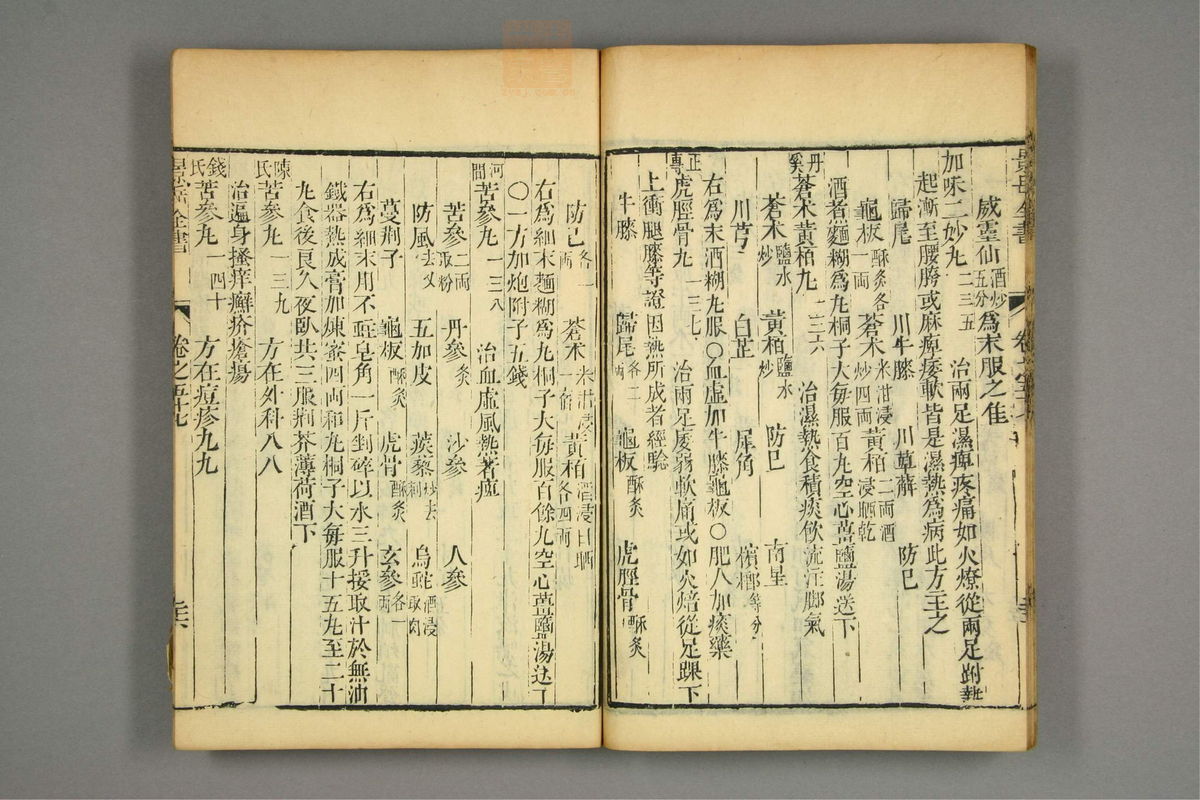 威靈仙酒炒五分爲末服之佳
加味二妙丸一三五 治兩足濕痺疼痛如火燎從兩足跗熱
起漸至腰胯或麻痺痿軟皆是濕熱爲病此方主之
歸尾 川牛膝 川萆薢 防已
龜板酥炙各一兩 蒼术米泔浸炒四兩 黃栢二兩酒浸晒乾
酒煮麵糊爲丸桐子大每服百丸空心薑鹽湯送下
丹溪蒼术黃栢丸一三六 治濕熱食積痰飲流注脚氣
蒼术鹽水炒 黃栢鹽水炒 防已 南星
川芎 白芷 犀角 檳榔等分
右爲末酒糊丸服〇血虛加牛膝龜板〇肥人加痰藥
正專虎脛骨丸一三七 治兩足痿弱軟痛或如火焙從足踝下
上衝腿膝等證因熱所成者經驗
牛膝 歸尾各二兩 龜板酥炙 虎脛骨酥炙
防已各一兩 蒼术米泔浸一宿 黃栢酒浸日晒各四兩
右爲細末麵糊爲丸桐子大每服百餘丸空心薑鹽湯送下
〇一方加炮附子五錢
河間苦參丸一三八 治血虛風熱著痺
苦參二兩取粉 丹參炙 沙參 人參
防風去叉 五加皮 蒺藜炒去刺 烏蛇酒浸取肉
蔓荆子 龜板酥炙 虎骨酥炙 玄參各一兩
右爲細末用不蛀皂角一斤剉碎以水三升挼取汁於無油
鐵器熬成膏加煉蜜四兩和丸桐子大每服十五丸至二十
丸食後良久夜臥共三服荆芥薄荷酒下
陳氏苦參丸一三九 方在外科八八
治遍身搔痒癬疥瘡瘍
錢氏苦參丸一四十 方在痘疹九九
景岳全書 卷之五十七